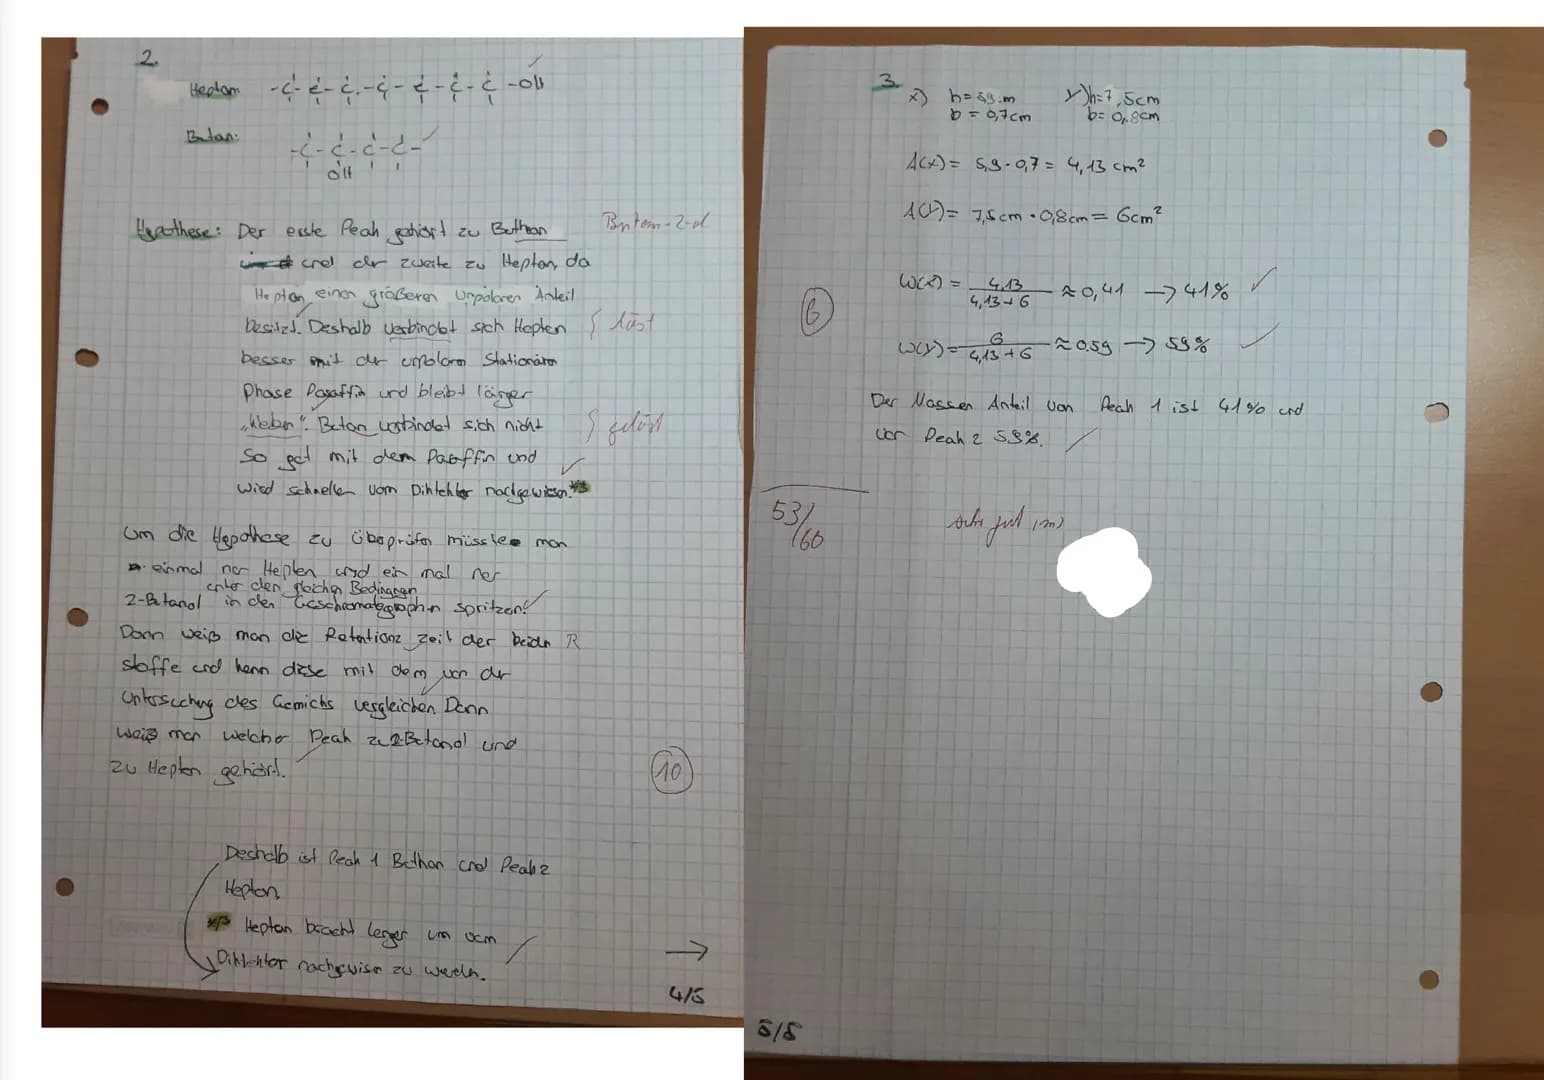 2.
Heptan -C-C-C-C-C-C-C-OH
Butan: -C-C-C-C-
OH
Hypothese: Der erste Peak gehört zu Buthan Butan-2-ol
und der zweite zu Heptan, da
Heptan einen größeren unpolaren Anteil
besitzt. Deshalb verbindet sich Heptan löst
besser mit der unpolaren Stationären
Phase Paraffin und bleibt länger
„kleben“. Butan verbindet sich nicht gelöst
so gut mit dem Paraffin und
wird schneller vom Dihtektor nachgewiesen.
um die Hypothese zu überprüfen müsste man
einmal nur Heptan und ein mal nur
unter den gleichen Bedingungen
2-Butanol in den Gaschromatographen spritzen.
Dann weiß man die Retations zeit der beiden R
stoffe und kann diese mit dem von der
Untersuchung des Gemichs vergleichen. Dann
weiß man welcher Peak zu 2-Butanol und
zu Heptan gehört.
10
Deshalb ist Peak 1 Buthan und Peak 2
Heptan
Heptan braucht länger um vom
Dihtektor nachgewiesen zu werden.
→
4/5
3
x) h=5,9cm y) h=7,5cm
b=0,7cm b=0,8cm
A(x)= 5,9·0,7= 4,13 cm²
A(y)= 7,5cm·0,8cm= 6cm²
W(x)= 4,13 / 4,13+6 ≈ 0,41 → 41%
6
W(y)= 6 / 4,13+6 ≈ 0,59 → 59%
Der Massen Anteil von Peak 1 ist 41% und
von Peak 2 59%.
53/60
sehr gut
5/5